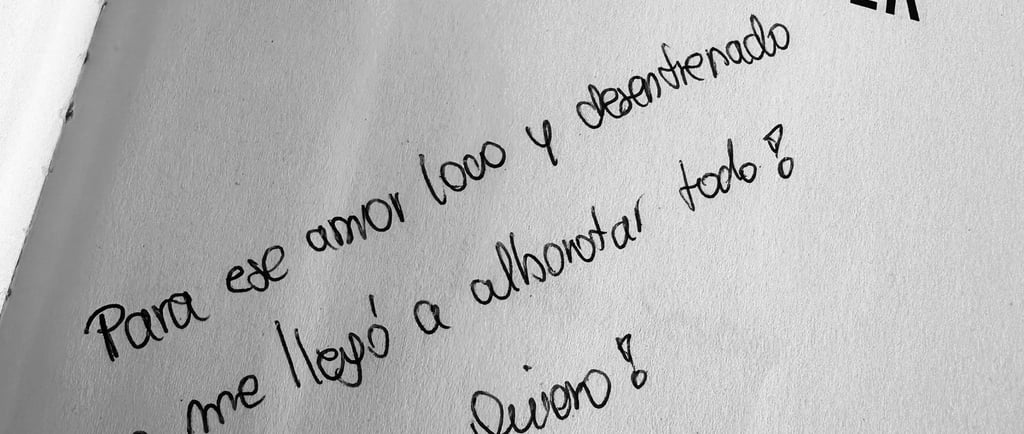 Para ese amor loco y desenfrenado
me llegó a alborotar todo!
Quiero!